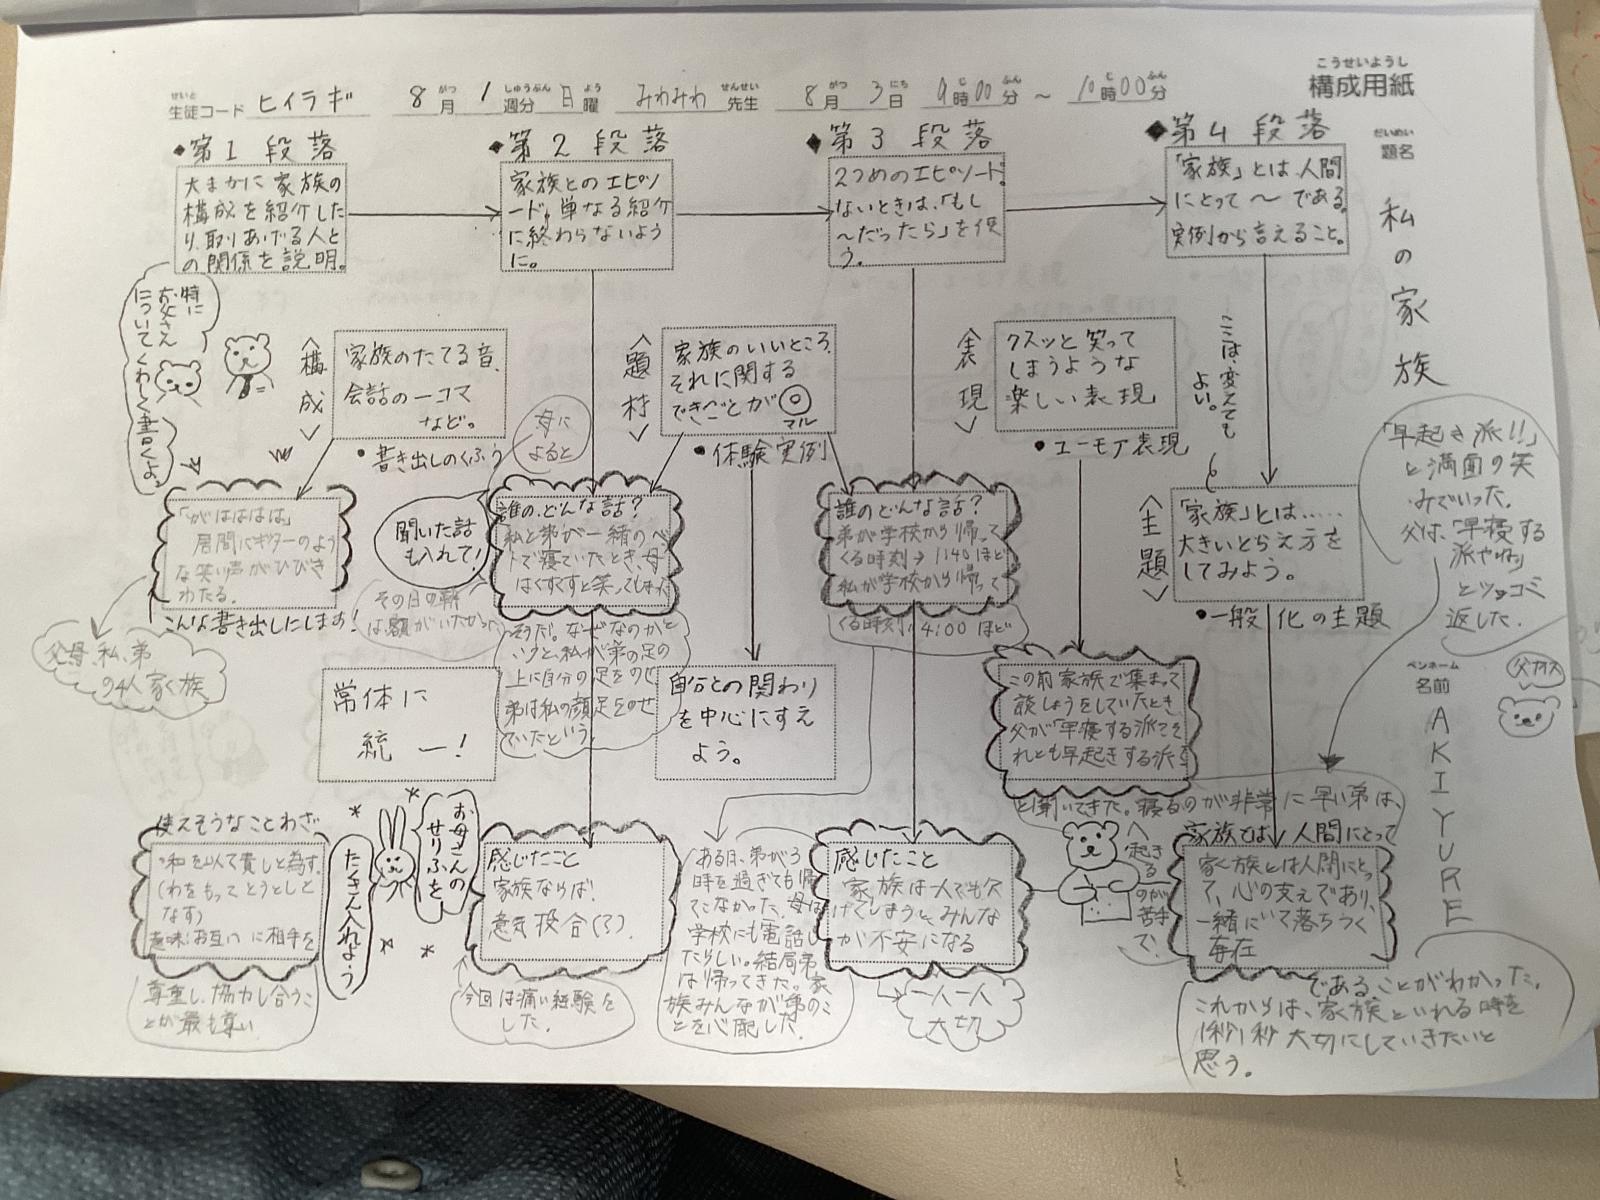 こうせいようし
構成用紙
せいと
生徒コード ヒイラギ 8月 1週分 日曜 みわみわ 先生 8月 3日 9時00分 ~ 10時00分
だいめい
題名
私の家族
ペンネーム
名前
AKIYURE
父カオス
◆第1段落
大まかに家族の
構成を紹介した
り、取りあげる人と
の関係を説明。
特に
お父さん
について
くわしく書くよ。
<構成>
家族のたてる音、
会話の一コマ
など。
•書き出しのくふう
「がはははは」
居間にギターのよう
な笑い声がひびき
わたる。
こんな書き出しにします!
父、母、私、弟
の4人家族
常体に
統一!
使えそうなことわざ
・和を以て貴しと為す。
(わをもってとうとしと
なす)
意味:お互いに相手を
尊重し、協力し合うこ
とが最も尊い
お母さんの
せりふを
たくさん入れよう
◆第2段落
家族とのエピソ
ード。単なる紹介
に終わらないよう
に。
<題材>
家族のいいところ、
それに関する
できごとが◎
マル
•体験実例
母に
よると
聞いた話
も入れて!
誰の、どんな話?
私と弟が一緒のベッ
トで寝ていたとき、母
はくすくすと笑ってしまった
そうだ。なぜなのかと
いうと、私が弟の足の
上に自分の足をのせ
弟は私の顔足をのせ
ていたという。
その日の朝
は顔がいたかった
自分との関わり
を中心にすえ
よう。
感じたこと
家族ならば、
意気投合(?)
今回は痛い経験を
した。
◆第3段落
2つめのエピソード。
ないときは、「もし
~だったら」を使
う。
<表現>
クスッと笑って
しまうような
楽しい表現
•ユーモア表現
誰のどんな話?
弟が学校から帰って
くる時刻→1:40ほど
私が学校から帰って
くる時刻、4:00ほど
ある日、弟が3
時を過ぎても帰っ
てこなかった。母は
学校にも電話し
たらしい。結局弟
は帰ってきた。家
族みんなが弟のこ
とを心配した。
感じたこと
家族は一人でも欠
けてしまうと、みんな
が不安になる
一人一人
大切
この前家族で集まって
談しょうをしていたとき
父が「早寝する派?そ
れとも早起きする派?」
と聞いてきた。寝るのが非常に早い弟は、
<起きる
のが苦手
で、
「早起き派!!」
と満面の笑
みでいった。
父は、「早寝する
派やねん」
とツッコミ
返した。
◆第4段落
「家族」とは人間
にとって~である。
実例から言えること。
ここは、変えても
よい。
<主題>
「家族」とは……
大きいとらえ方を
してみよう。
•一般化の主題
家族とは、人間にとって
家族とは人間にとっ
て、心の支えであり、
一緒にいて落ちつく
存在
であることがわかった。
これからは、家族といれる時を
1秒1秒大切にしていきたいと
思う。